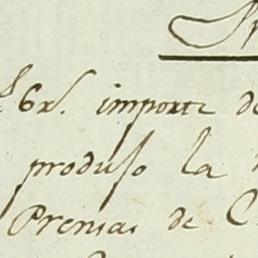 6 rs. importe de
produso la
Prensa de